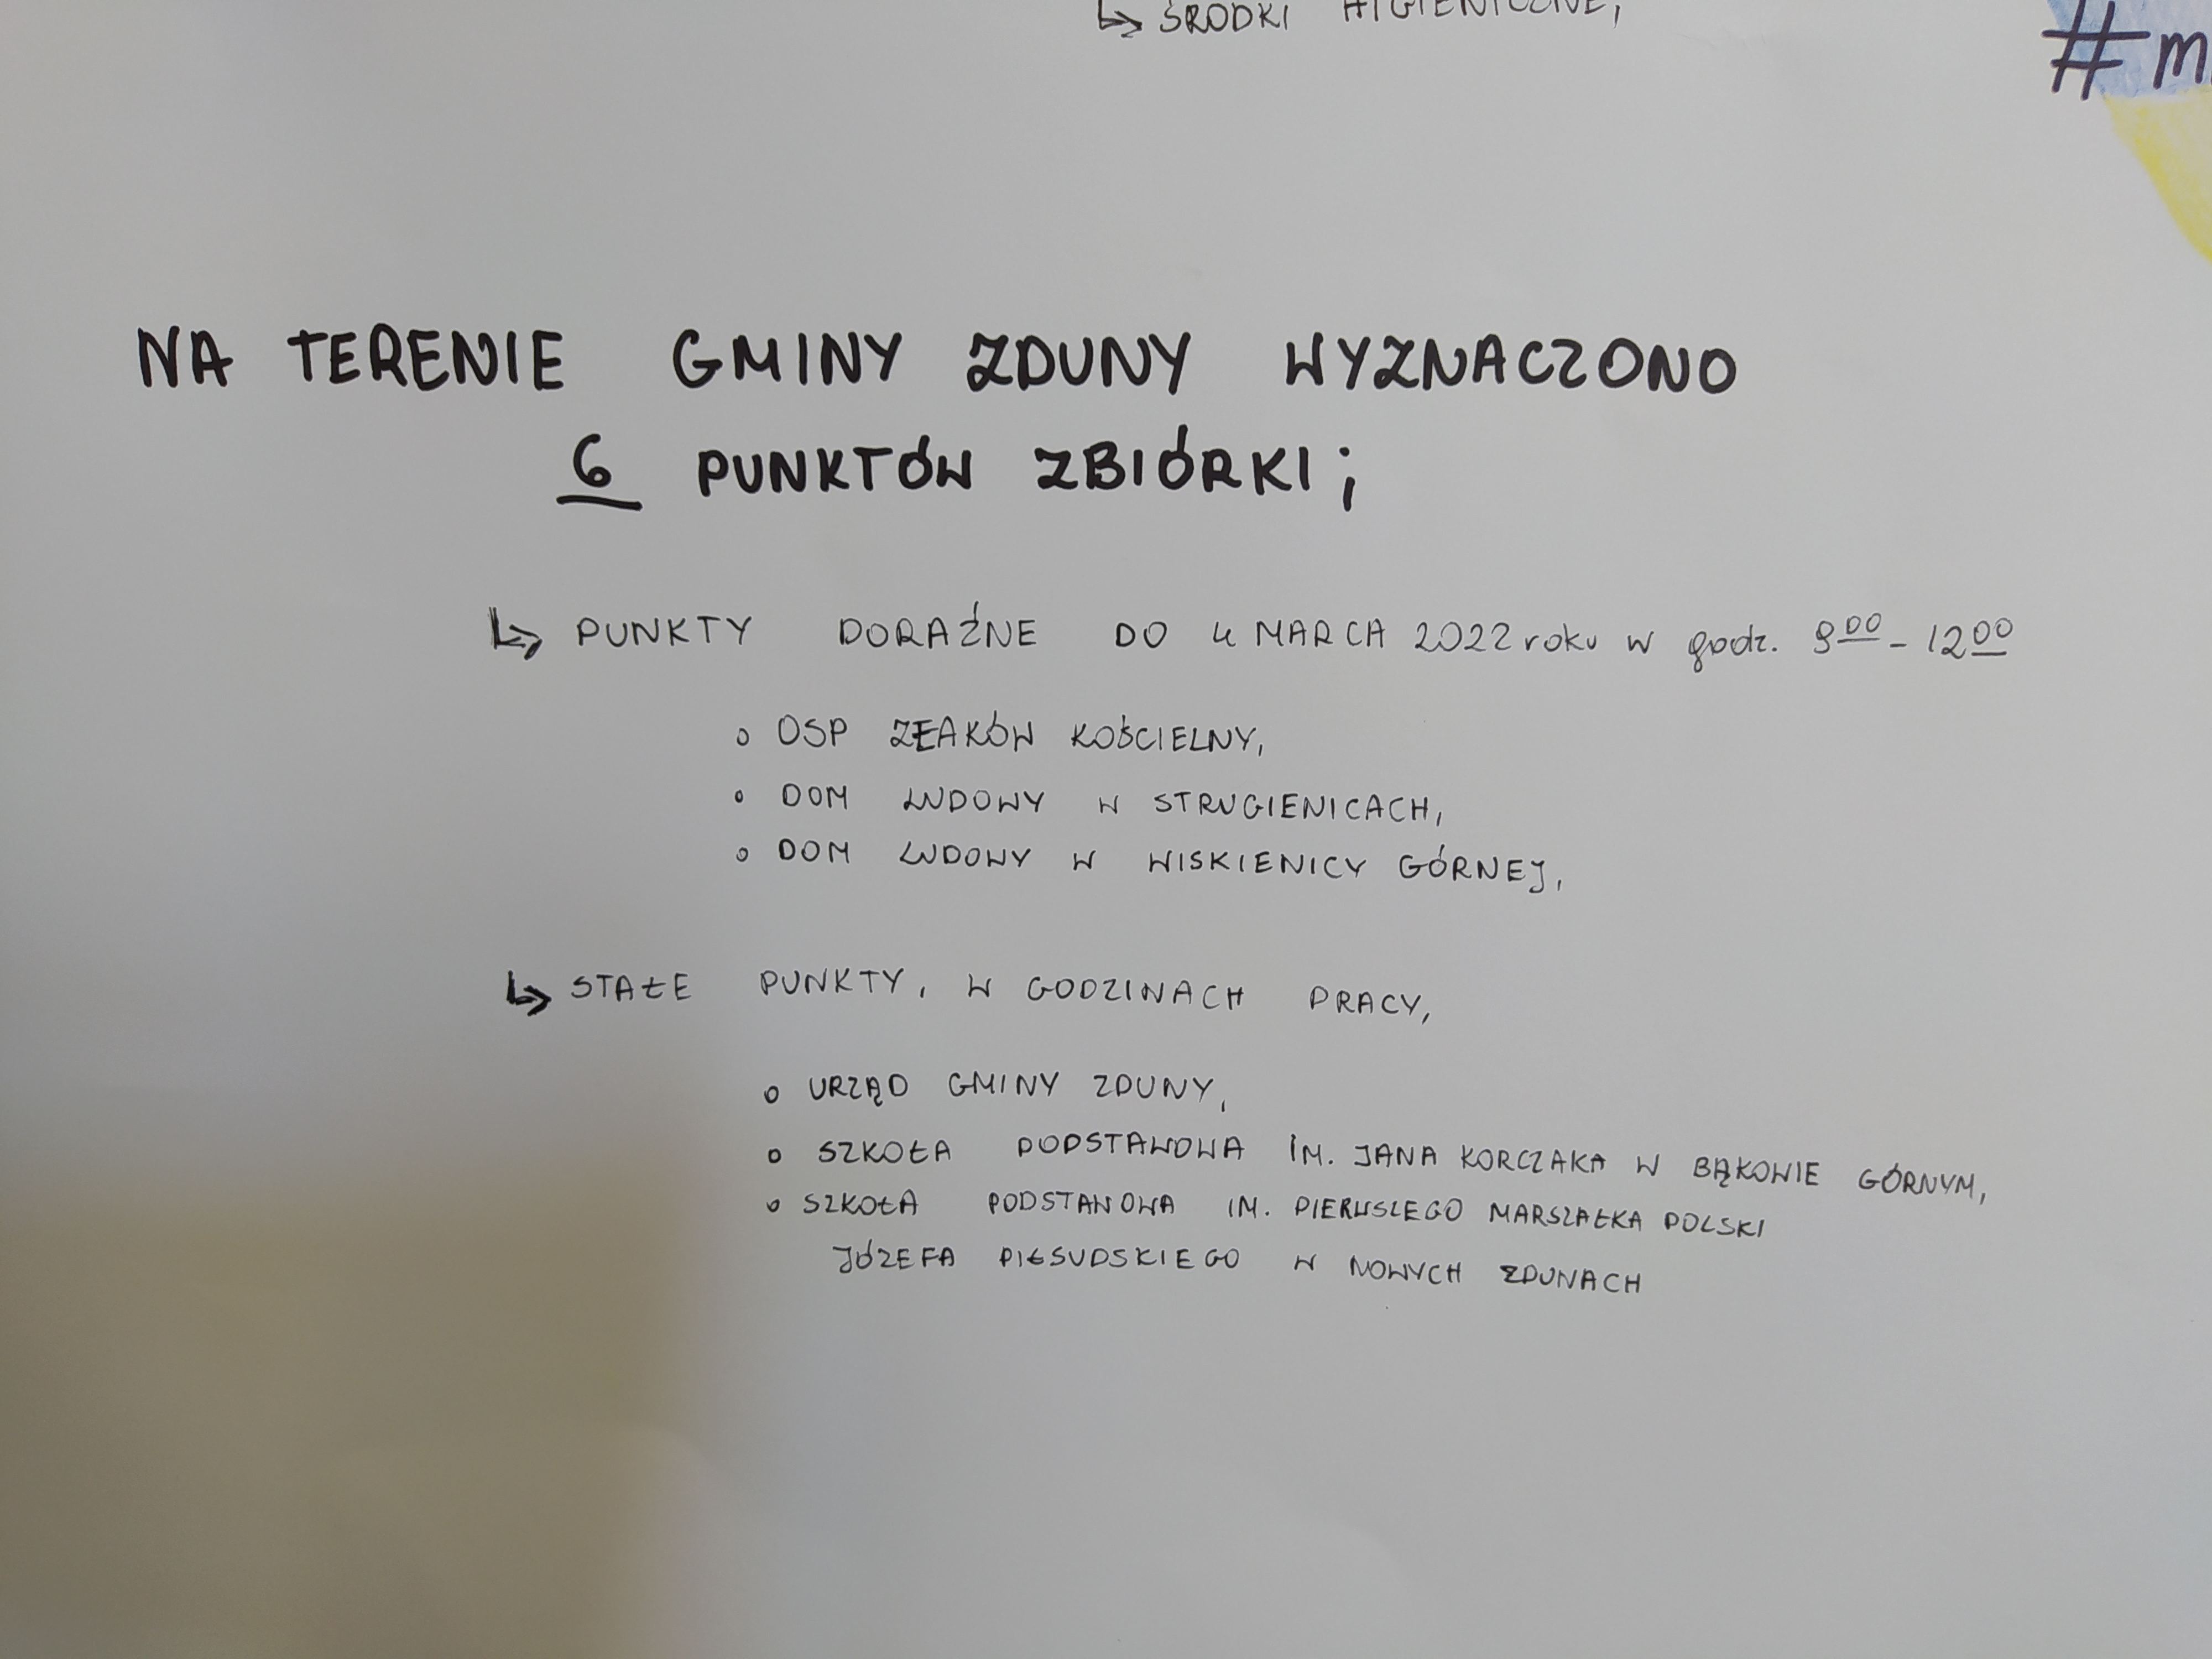 ↳ ŚRODKI HIGIENICZNE,
#m
NA TERENIE GMINY ZDUNY WYZNACZONO
6 PUNKTÓW ZBIÓRKI;
↳ PUNKTY DORAŹNE DO 4 MARCA 2022 roku w godz. 9⁰⁰ - 12⁰⁰
• OSP ZŁAKÓW KOŚCIELNY,
• DOM LUDOWY W STRUGIENICACH,
• DOM LUDOWY W WISKIENICY GÓRNEJ,
↳ STAŁE PUNKTY, W GODZINACH PRACY,
• URZĄD GMINY ZDUNY,
• SZKOŁA PODSTAWOWA IM. JANA KORCZAKA W BĄKOWIE GÓRNYM,
• SZKOŁA PODSTAWOWA IM. PIERWSZEGO MARSZAŁKA POLSKI
JÓZEFA PIŁSUDSKIEGO W NOWYCH ZDUNACH